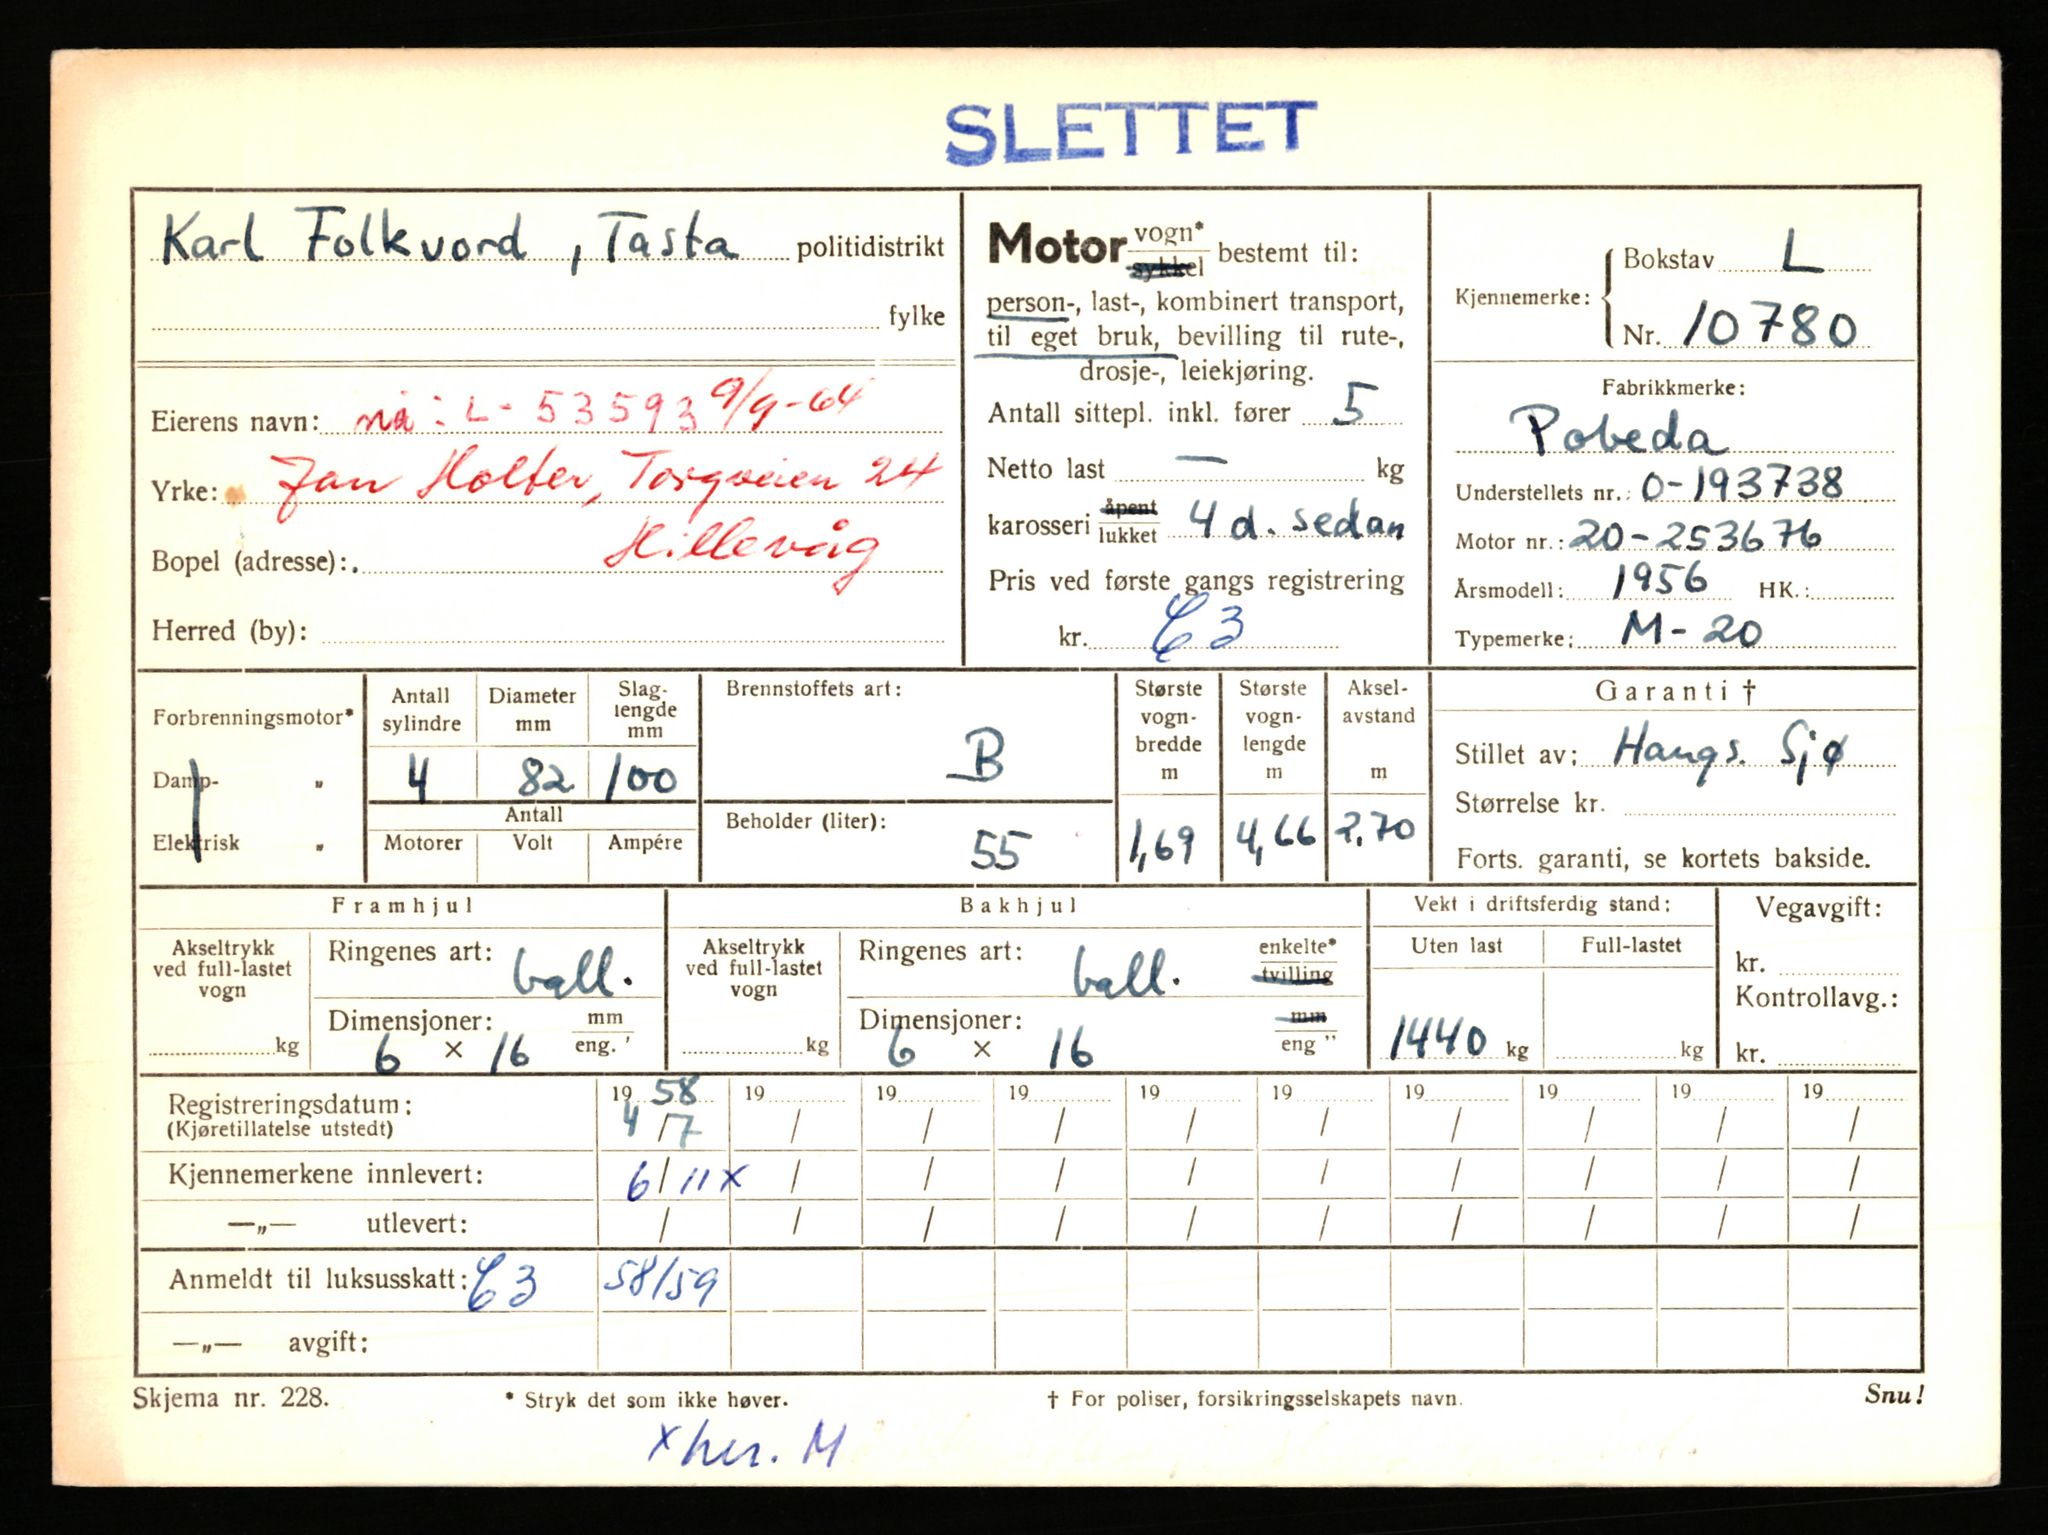 SLETTET
Karl Folkvord, Tasta politidistrikt
fylke
Eierens navn: nå: L-53593 9/9-64
Yrke: Jan Holter, Torgveien 24
Bopel (adresse): Hillevåg
Herred (by):
Motor vogn* sykkel bestemt til:
person-, last-, kombinert transport,
til eget bruk, bevilling til rute-,
drosje-, leiekjøring.
Antall sittepl. inkl. fører 5
Netto last — kg
karosseri åpent lukket 4 d. sedan
Pris ved første gangs registrering
kr. C3
Kjennemerke: { Bokstav L
Nr. 10780
Fabrikkmerke:
Pobeda
Understellets nr.: 0-193738
Motor nr.: 20-253676
Årsmodell: 1956 HK.:
Typemerke: M-20
Forbrenningsmotor*
Damp- „
Elektrisk „
Antall sylindre
Diameter mm
Slag-lengde mm
4 82 100
Antall
Motorer Volt Ampére
Brennstoffets art:
B
Beholder (liter):
55
Største vogn-bredde m
1,69
Største vogn-lengde m
4,66
Aksel-avstand m
2,70
Garanti †
Stillet av: Haugs. Sjø
Størrelse kr.
Forts. garanti, se kortets bakside.
Framhjul
Akseltrykk ved full-lastet vogn
kg
Ringenes art: ball.
Dimensjoner: mm
6 × 16 eng. '
Bakhjul
Akseltrykk ved full-lastet vogn
kg
Ringenes art: ball. enkelte* tvilling
Dimensjoner: mm
6 × 16 eng "
Vekt i driftsferdig stand:
Uten last Full-lastet
1440 kg kg
Vegavgift:
kr.
Kontrollavg.:
kr.
Registreringsdatum: 19 58 19 19 19 19 19 19 19 19 19
(Kjøretillatelse utstedt) 4/7 / / / / / / / / /
Kjennemerkene innlevert: 6/11 x / / / / / / / / /
—„— utlevert: / / / / / / / / / /
Anmeldt til luksusskatt: C3 58/59
—„— avgift:
Skjema nr. 228. * Stryk det som ikke høver. † For poliser, forsikringsselskapets navn. Snu!
x her. M